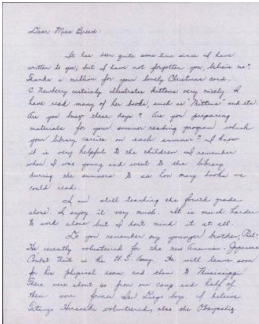 Dear Miss Breed:
It has been quite some time since I have
written to you, but I have not forgotten you, believe me.
Thanks a million for your lovely Christmas card.
C. Newberry certainly illustrates kittens very nicely. I
have read many of her books, such as "Mittens" and etc.
Are you busy these days? Are you preparing
materials for your summer reading program which
your library carries on each summer? I know
it is very helpful to the children. I remember
when I was young and went to the library
during the summers to see how many books we
could read.
I am still teaching the fourth grade
alone. I enjoy it very much. It is much harder
to work alone but I don't mind it at all.
Do you remember my younger brother,
He recently volunteered for the new Japanese
Combat Unit in the U.S. Army. He will leave soon
for his physical exam and then to Mississippi.
There were about from our camp and half of
them were former San Diego boys. I believe
Tetsuzo Hirasaki volunteered, also